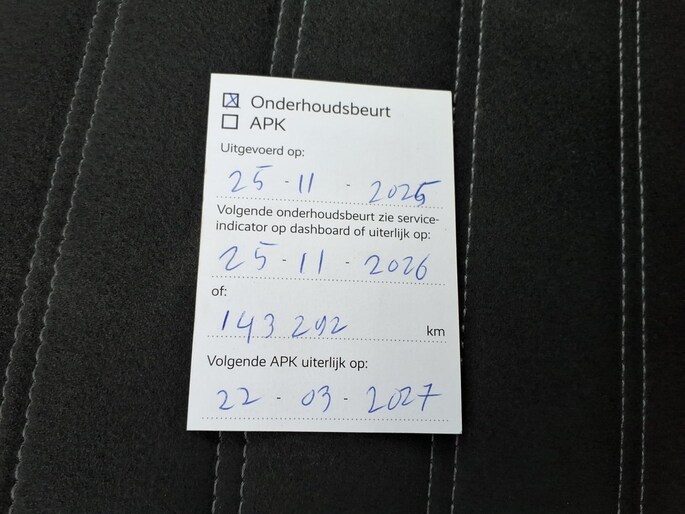 ☒ Onderhoudsbeurt
☐ APK
Uitgevoerd op:
25-11-2025
Volgende onderhoudsbeurt zie service-
indicator op dashboard of uiterlijk op:
25-11-2026
of:
143 292 km
Volgende APK uiterlijk op:
22-03-2027